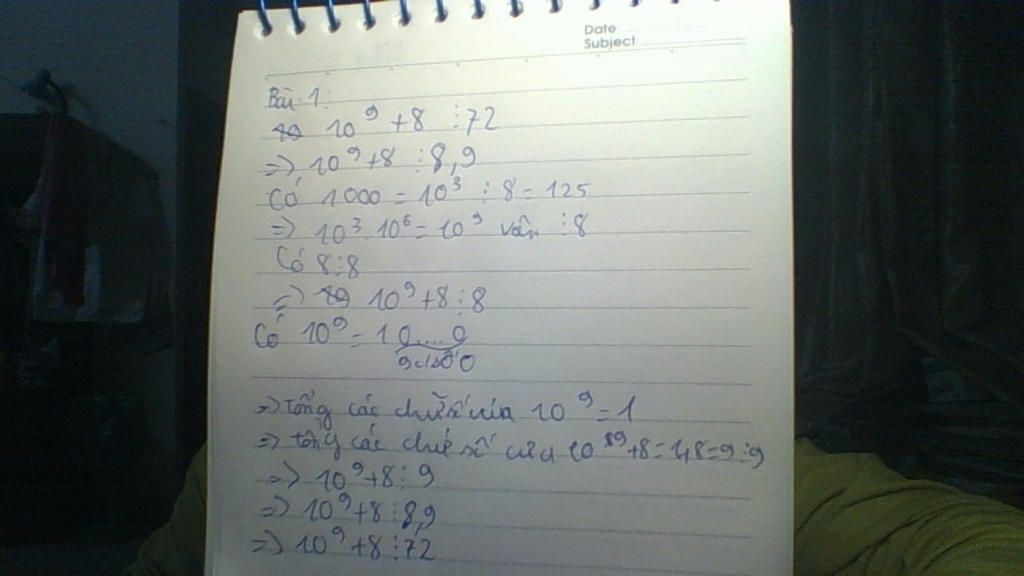 Date
Subject
Bài 1:
10⁹ +8 ⋮72
=> 10⁹+8 ⋮8,9
Có 1000 = 10³ : 8 = 125
=> 10³.10⁶ = 10⁹ vẫn ⋮8
Có 8⋮8
=> 10⁹+8⋮8
Có 10⁹ = 10....0
9 c/số 0
=> tổng các chữ số của 10⁹ = 1
=> tổng các chữ số của 10⁹+8=1+8=9⋮9
=> 10⁹+8⋮9
=> 10⁹+8⋮8,9
=> 10⁹+8⋮72